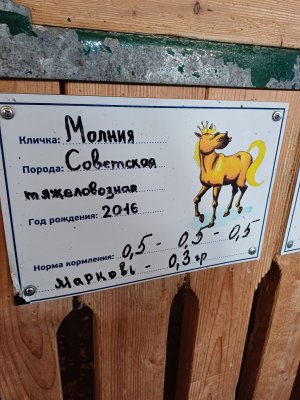 Кличка: Молния
Порода: Советская
тяжеловозная
Год рождения: 2016
Норма кормления: 0,5 - 0,5 - 0,5
Марковь - 0,3 гр